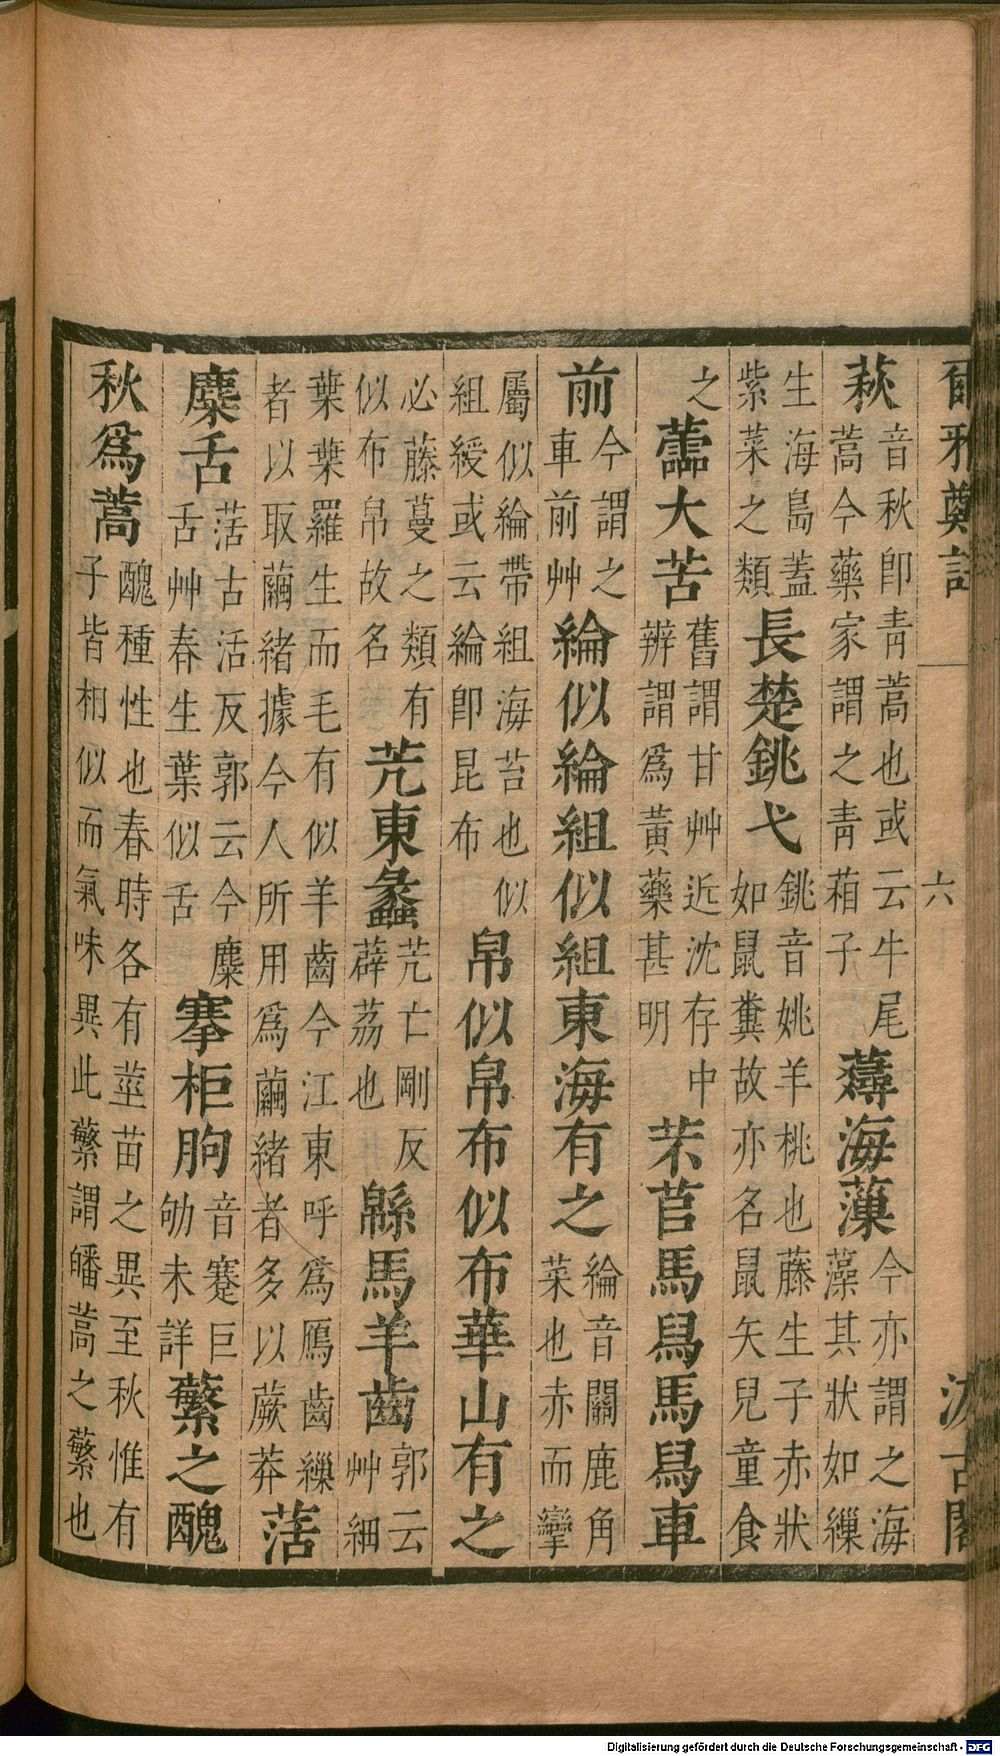 爾雅鄭註 六 汲古閣
萩音秋卽靑蒿也或云牛尾蒿今藥家謂之靑葙子薚海薻今亦謂之海藻其狀如繅
生海島蓋紫菜之類長楚銚弋銚音姚羊桃也藤生子赤狀如鼠糞故亦名鼠矢兒童食
之蘦大苦舊謂甘艸近沈存中辨謂爲黃藥甚明芣苢馬舄馬舄車
前今謂之車前艸綸似綸組似組東海有之綸音關鹿角菜也赤而攣
屬似綸帶組海苔也似組綬或云綸卽昆布帛似帛布似布華山有之
必藤蔓之類有似布帛故名艽東蠡艽亡剛反薜荔也緜馬羊齒郭云艸細
葉葉羅生而毛有似羊齒今江東呼爲鴈齒繅者以取繭緒據今人所用爲繭緒者多以蕨莽萿
麋舌萿古活反郭云今麋舌艸春生葉似舌搴柜朐音蹇巨劬未詳蘩之醜
秋爲蒿醜種性也春時各有莖苗之異至秋惟有子皆相似而氣味異此蘩謂皤蒿之蘩也
Digitalisierung gefördert durch die Deutsche Forschungsgemeinschaft - DFG